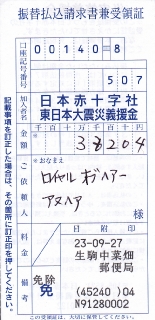 振替払込請求書兼受領証
口座記号番号
00140=8
507
加入者名
日本赤十字社
東日本大震災義援金
金額
千百十万千百十円
38204
ご依頼人
*おなまえ
ロイヤル ギヘアー
アヌヘア
様
料金
備考
日附印
23-09-27
生駒中菜畑
郵便局
免除
免
(45240)04
N91280002
この受領証は、大切に保管してください。
記載事項を訂正した場合は、その箇所に訂正印を押してください。